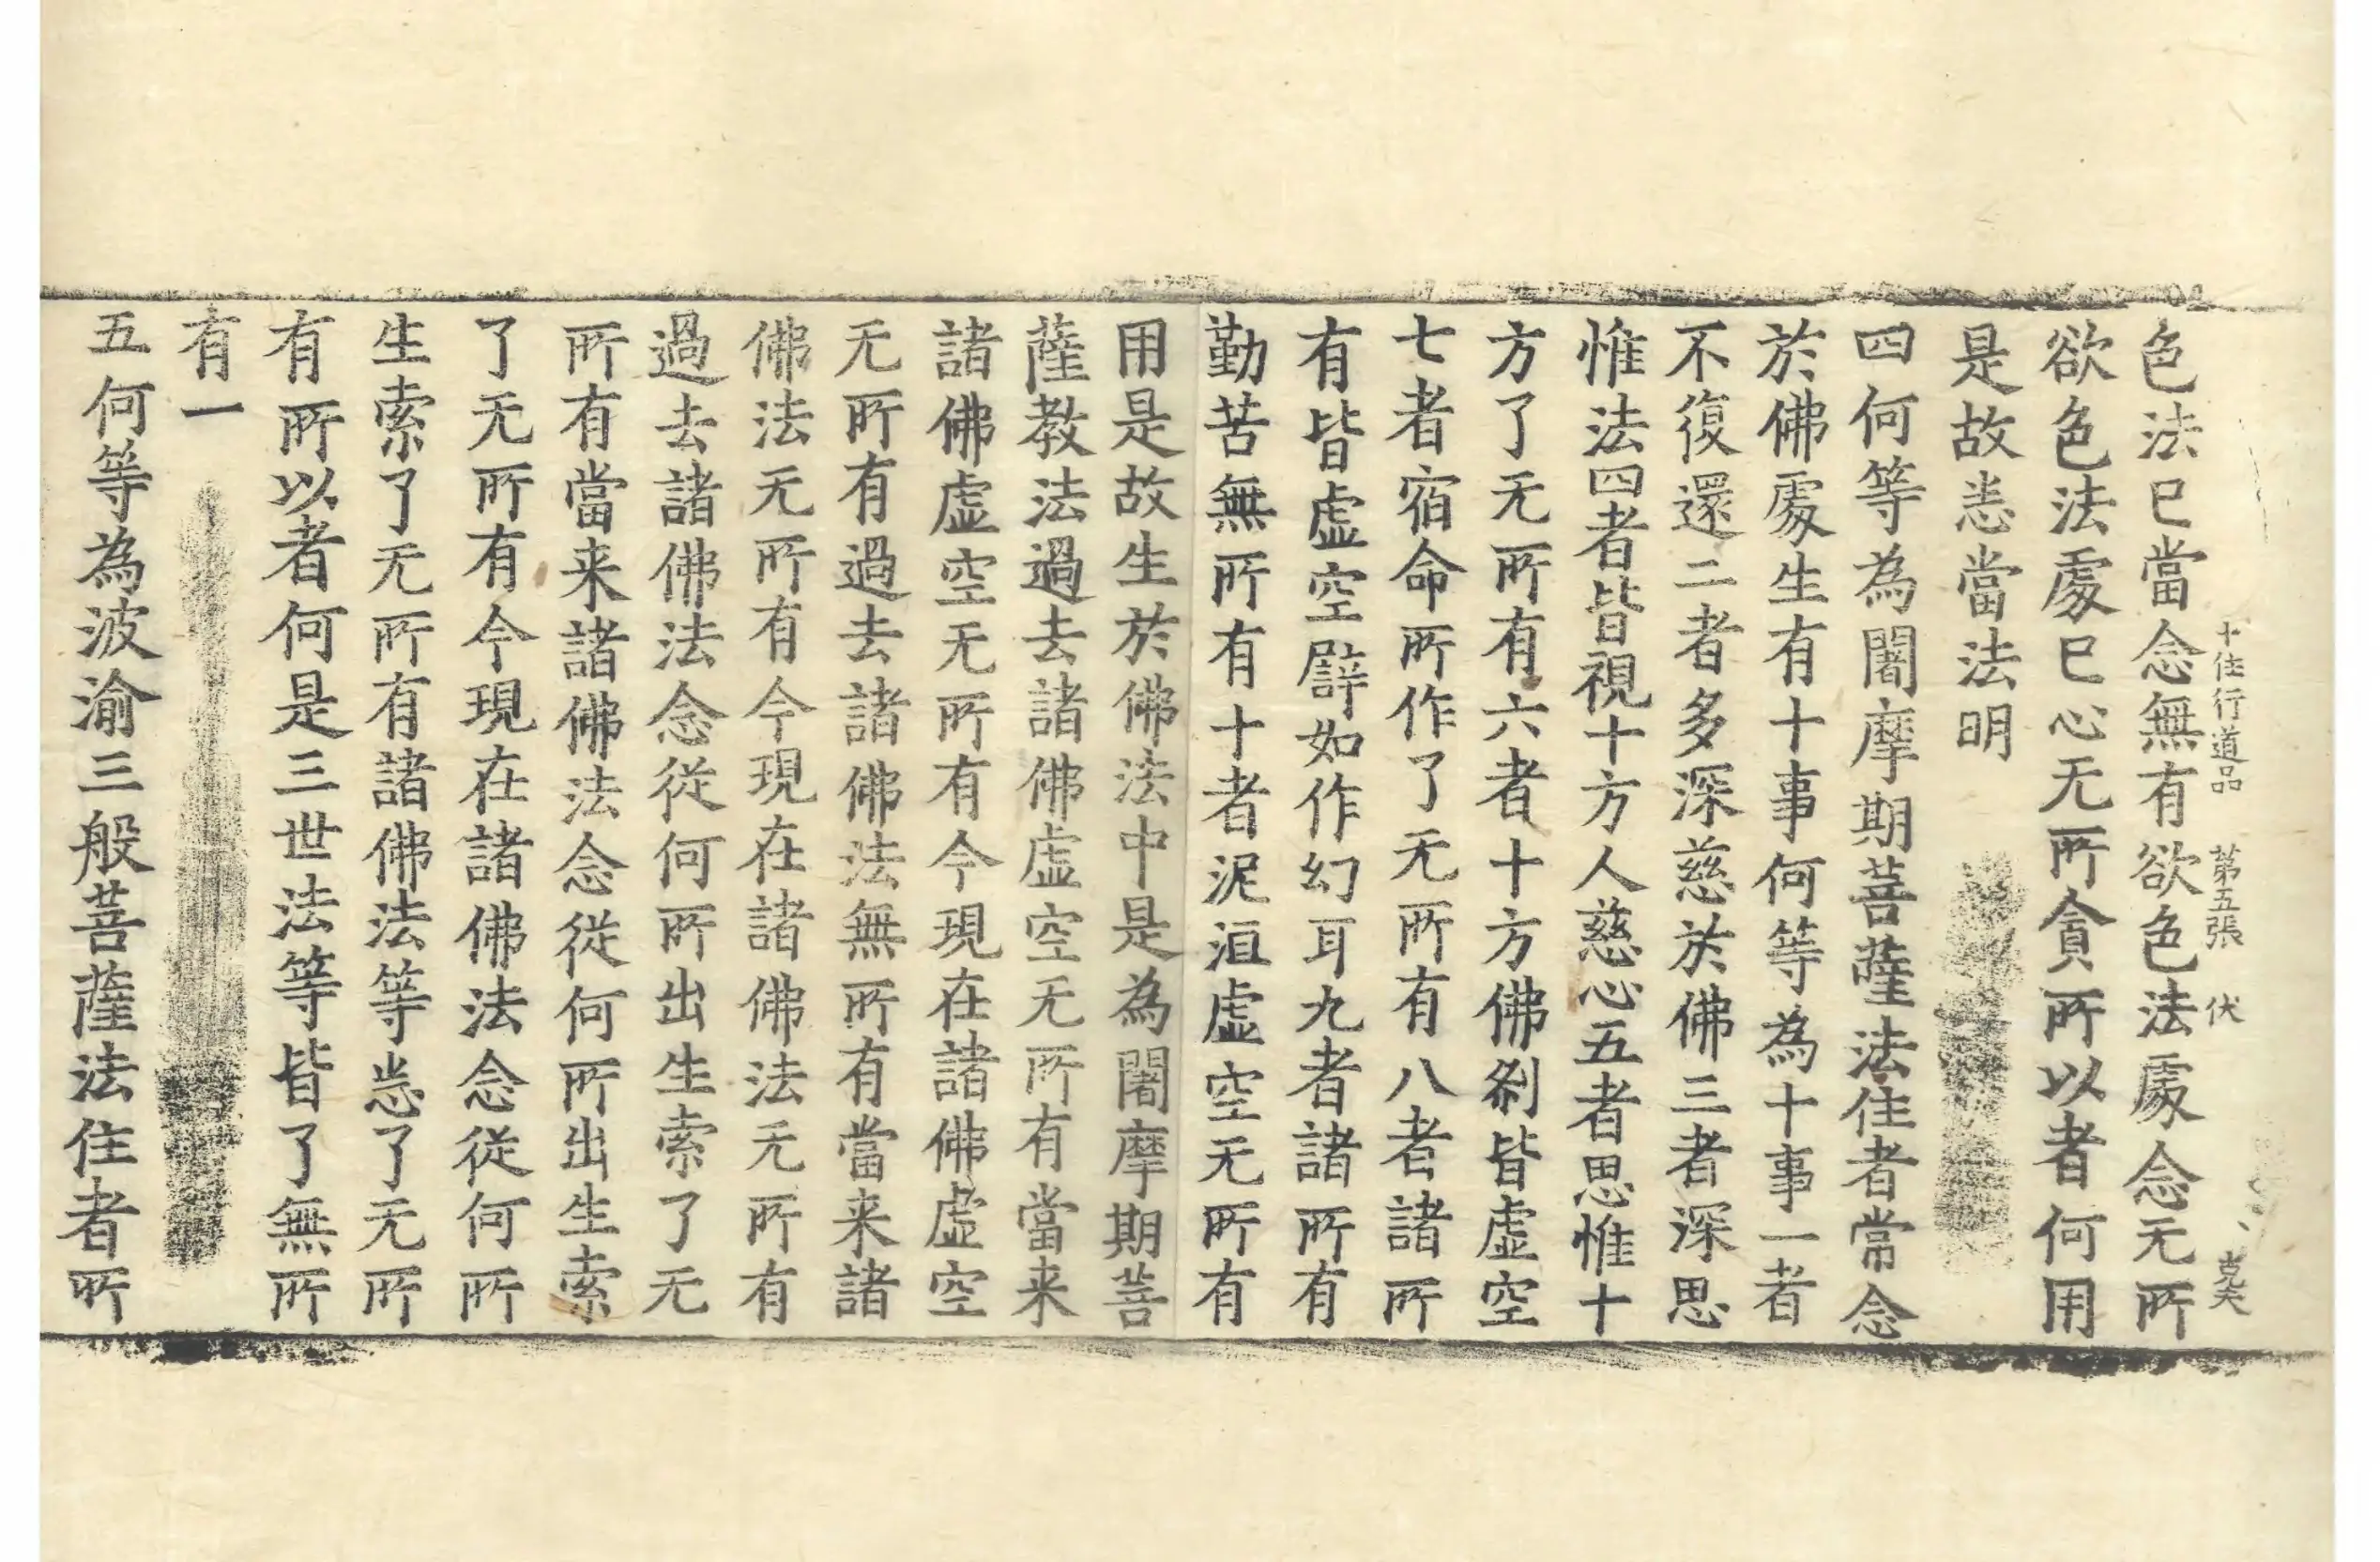 十住行道品　第五張　伏
色法已當念無有欲色法處念无所
欲色法處已心无所貪所以者何用
是故恙當法明
四何等為闍摩期菩薩法住者常念
於佛處生有十事何等為十事一者
不復還二者多深慈於佛三者深思
惟法四者皆視十方人慈心五者思惟十
方了无所有六者十方佛刹皆虛空
七者宿命所作了无所有八者諸所
有皆虛空譬如作幻耳九者諸所有
勤苦無所有十者泥洹虛空无所有
用是故生於佛法中是為闍摩期菩
薩教法過去諸佛虛空无所有當来
諸佛虛空无所有今現在諸佛虛空
无所有過去諸佛法無所有當来諸
佛法无所有今現在諸佛法无所有
過去諸佛法念從何所出生索了无
所有當来諸佛法念從何所出生索
了无所有今現在諸佛法念從何所
生索了无所有諸佛法等恙了无所
有所以者何是三世法等皆了無所
有一
五何等為波渝三般菩薩法住者所